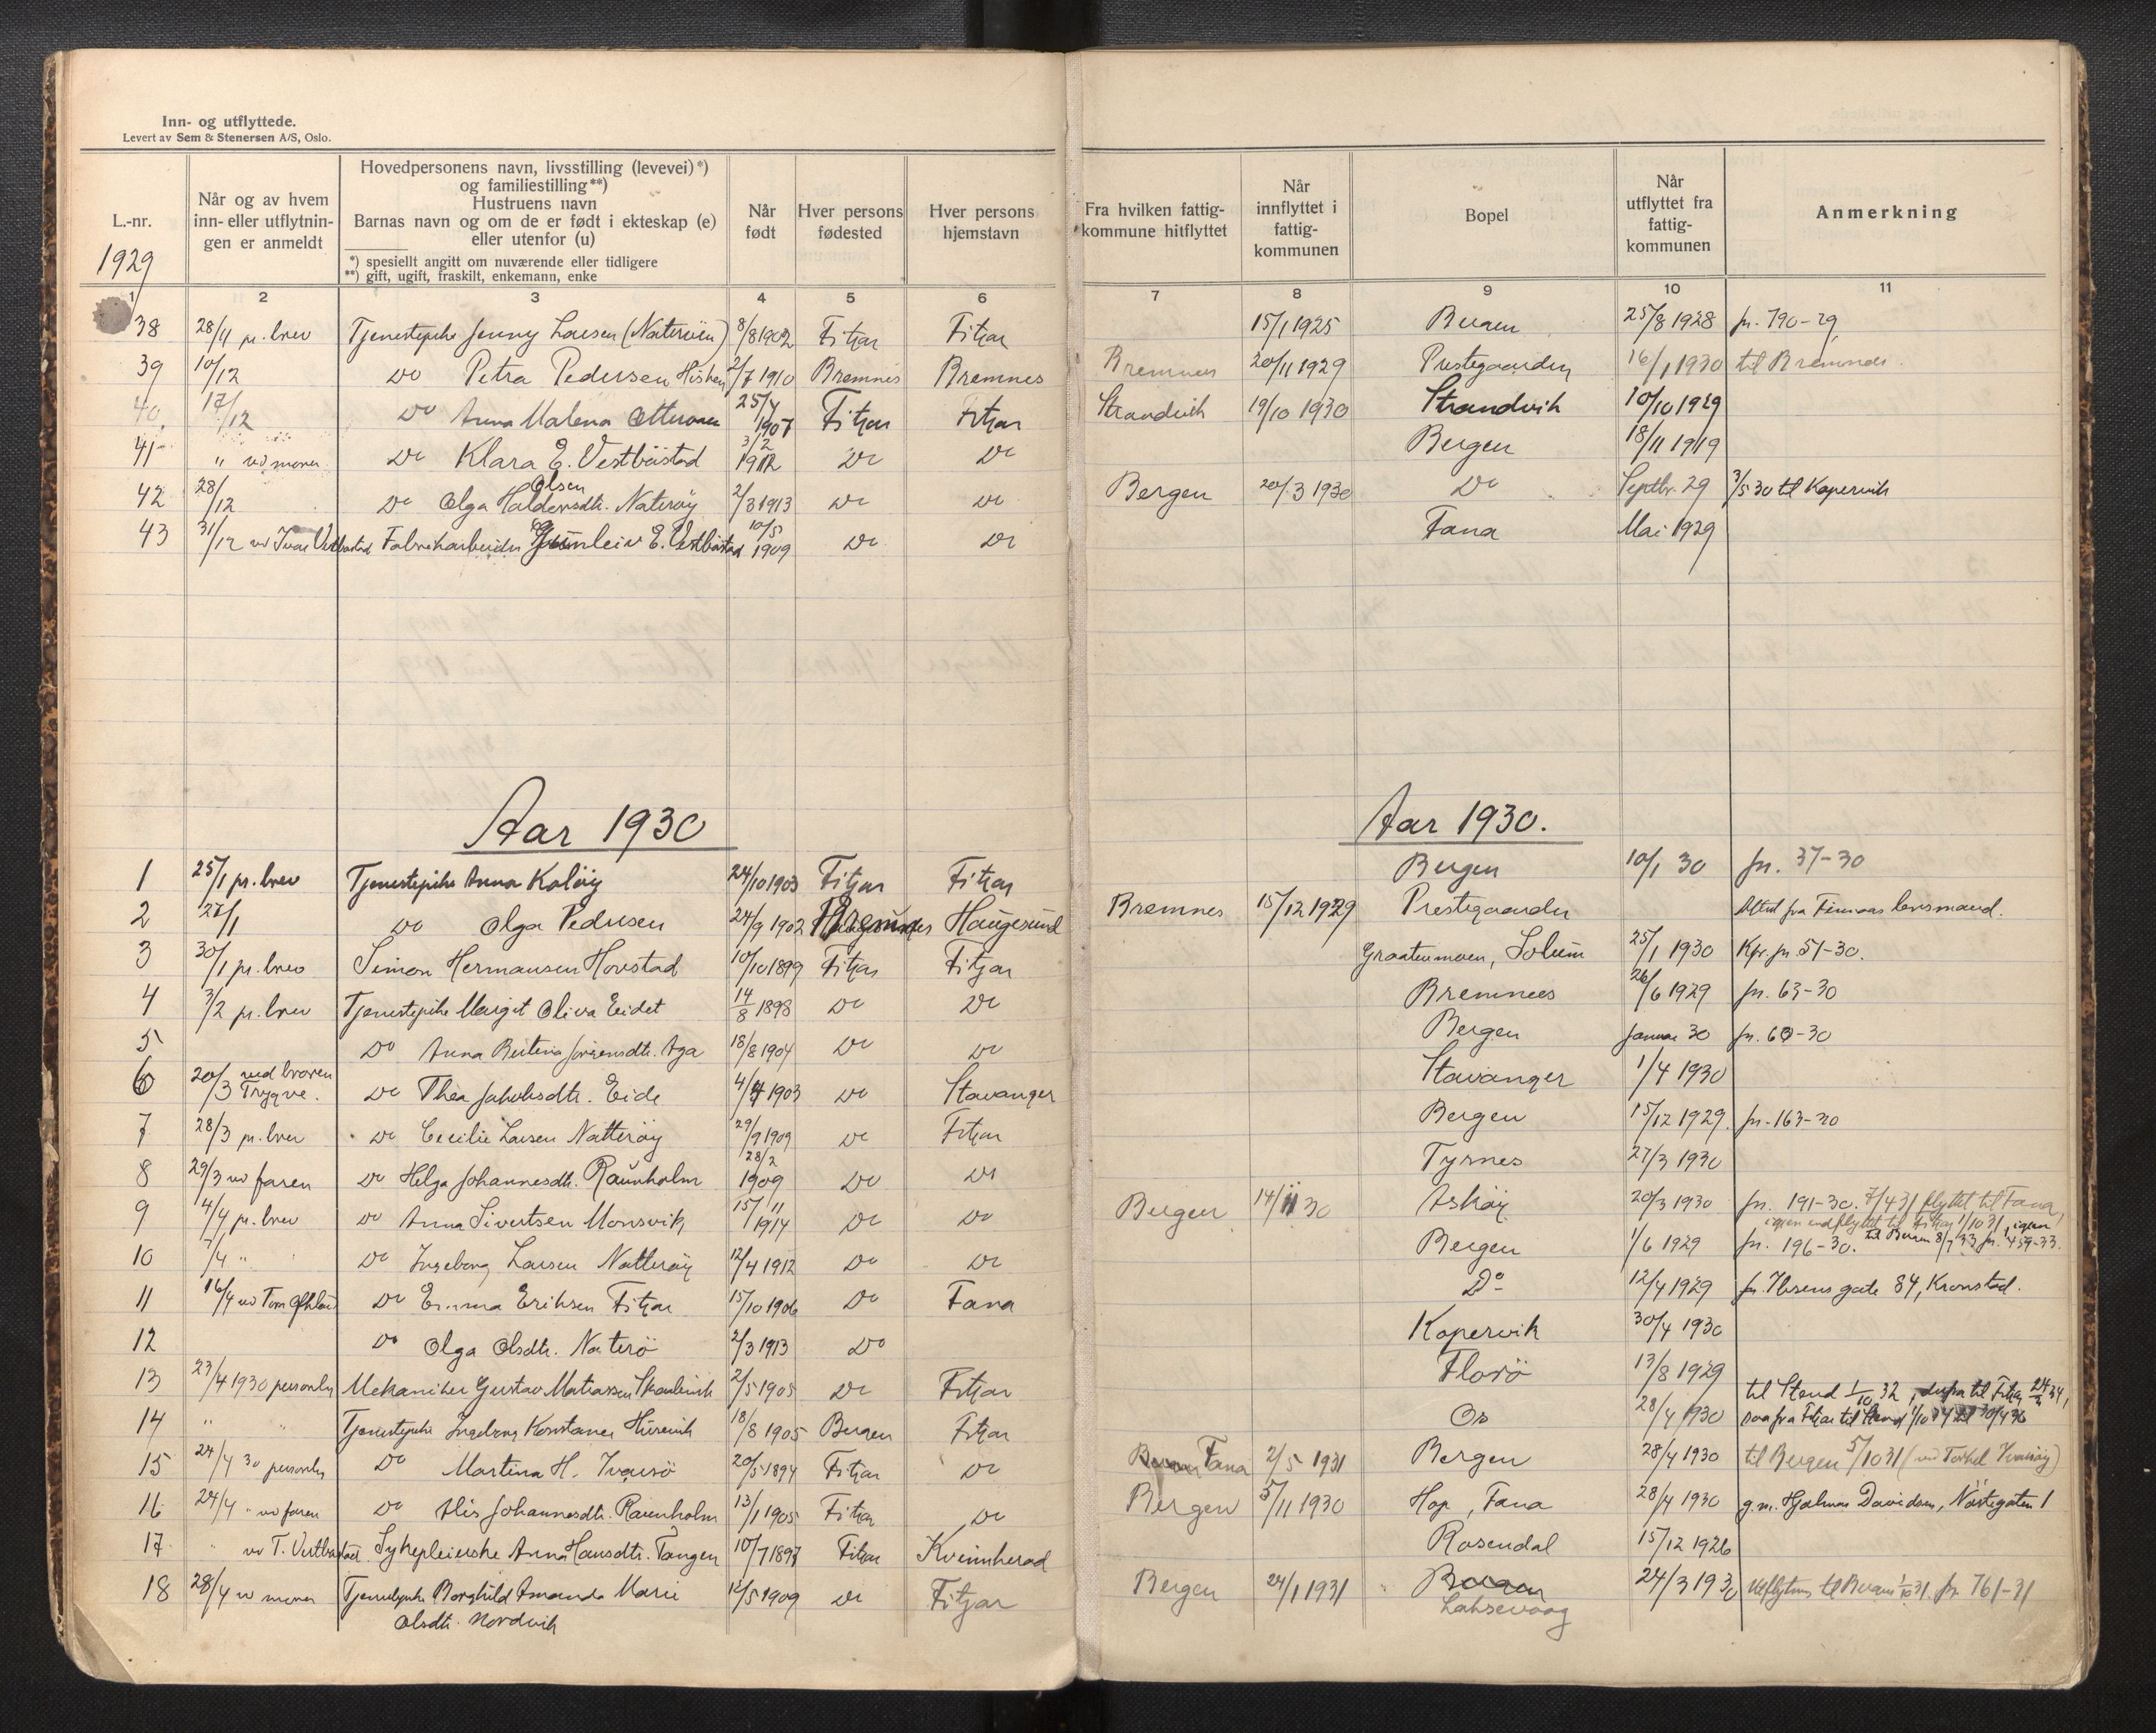 Inn- og utflyttede.
Levert av Sem & Stenersen A/S, Oslo.
L.-nr.
1929
Når og av hvem
inn- eller utflytnin-
gen er anmeldt
Hovedpersonens navn, livsstilling (levevei) *)
og familiestilling **)
Hustruens navn
Barnas navn og om de er født i ekteskap (e)
eller utenfor (u)
*) spesiellt angitt om nuværende eller tidligere
**) gift, ugift, fraskilt, enkemann, enke
Når
født
Hver persons
fødested
Hver persons
hjemstavn
Fra hvilken fattig-
kommune hitflyttet
Når
innflyttet i
fattig-
kommunen
Bopel
Når
utflyttet fra
fattig-
kommunen
Anmerkning
1 2 3 4 5 6 7 8 9 10 11
38 28/11 pr. brev Tjenestepike Jenny Larsen (Naterøien) 8/8 1902 Fitjar Fitjar 15/1 1925 Bergen 25/8 1928 jn. 790-29
39 10/12 Do Petra Pedersen Hisken 2/7 1910 Bremnes Bremnes Bremnes 20/11 1929 Prestegaarden 16/1 1930 til Bremnes
40 17/12 Do Anna Malena 25/4 1907 Fitjar Fitjar Strandvik 19/10 1930 Strandvik 10/10 1929
41 " ved moren Do Klara E. Vestbøstad 3/2 1912 Do Do Bergen 18/11 1919
42 28/12 Do Olga Haldorsdtr. Olsen Naterøy 2/3 1913 Do Do Bergen 20/3 1930 Do Septbr. 29 3/5 30 til Kopervik
43 31/12 ved Ivar Vestbøstad Fabrikarbeider Gunleiv E. Vestbøstad 10/5 1909 Do Do Fana Mai 1929
Aar 1930 Aar 1930.
1 25/1 pr. brev Tjenestepike Anna Kaløy 24/10 1903 Fitjar Fitjar Bergen 10/1 30 jn. 37-30
2 27/1 Do Olga Pedersen 24/9 1902 Haugesund Bremnes 15/12 1929 Prestegaarden fra lensmand.
3 30/1 pr. brev Simon Hermansen Hovstad 10/10 1899 Fitjar Fitjar Graatenmoen, Solum 25/1 1930 Kpr. jn. 51-30.
4 3/2 pr. brev Tjenestepike Margit Oliva Eidet 14/8 1898 Do Do Bremnes 26/6 1929 jn. 63-30
5 Do Anna Bertina Jørgensdtr. Aga 18/8 1904 Do Do Bergen Januar 30 jn. 60-30
6 20/3 ved broren Trygve. Do Thea Jakobsdtr. Eide 4/7 1903 Do Stavanger Stavanger 1/4 1930
7 28/3 pr. brev Do Cecilie Larsen Natterøy 29/9 1909 Do Fitjar Bergen 15/12 1929 jn. 163-30
8 29/3 ved faren Do Helga Johannesdtr. Raunholm 28/2 1909 Do Do Tysnes 27/3 1930
9 4/4 pr. brev Do Anna Sivertsen Monsvik 15/11 1914 Do Do Bergen 14/11 30 Askøy 20/3 1930 jn. 191-30. 7/4 31 flyttet til Fana,
igjen indflyttet til Fitjar 1/10 31, igjen
10 7/4 " Do Ingeborg Larsen Natterøy 12/4 1912 Do Do Bergen 1/6 1929 jn. 196-30. til Bergen 8/7 33 jn. 459-33.
11 16/4 ved Do Emma Eriksen Fitjar 15/10 1906 Do Fana Do 12/4 1929 jn. Ibsens gate 84, Kronstad.
12 Do Olga Olsdtr. Naterø 2/3 1913 Do Kopervik 30/4 1930
13 23/4 1930 personlig Mekaniker Gustav Matiassen 2/5 1905 Do Fitjar Florø 13/8 1929
14 " " Tjenestepike Ingeborg Konstanse 18/8 1905 Bergen Fitjar Os 28/4 1930 til Stend 1/10 32
15 24/4 30 personlig Do Martina H. Ivarsø 20/5 1894 Fitjar Do Fana 2/5 1931 Bergen 28/4 1930 til Bergen 5/10 31
16 24/4 " ved faren Do Alis Johannesdtr. Raunholm 13/1 1905 Fitjar Do Bergen 5/11 1930 Hop, Fana 28/4 1930 g.m. Hjalmar Davidsen, Nøstegaten 1
17 " ved T. Vestbøstad Sykepleierske Anna Hansdtr. Tangen 10/7 1897 Fitjar Kvinnherad Rosendal 15/12 1926
18 28/4 v moren Tjenestepike Borghild Amanda Marie 12/5 1909 Do Fitjar Bergen 24/1 1931 Bergen 24/3 1930 Utflyttning til Bergen 1/10 31. jn 761-31
Olsdtr. Nordvik Laksevaag